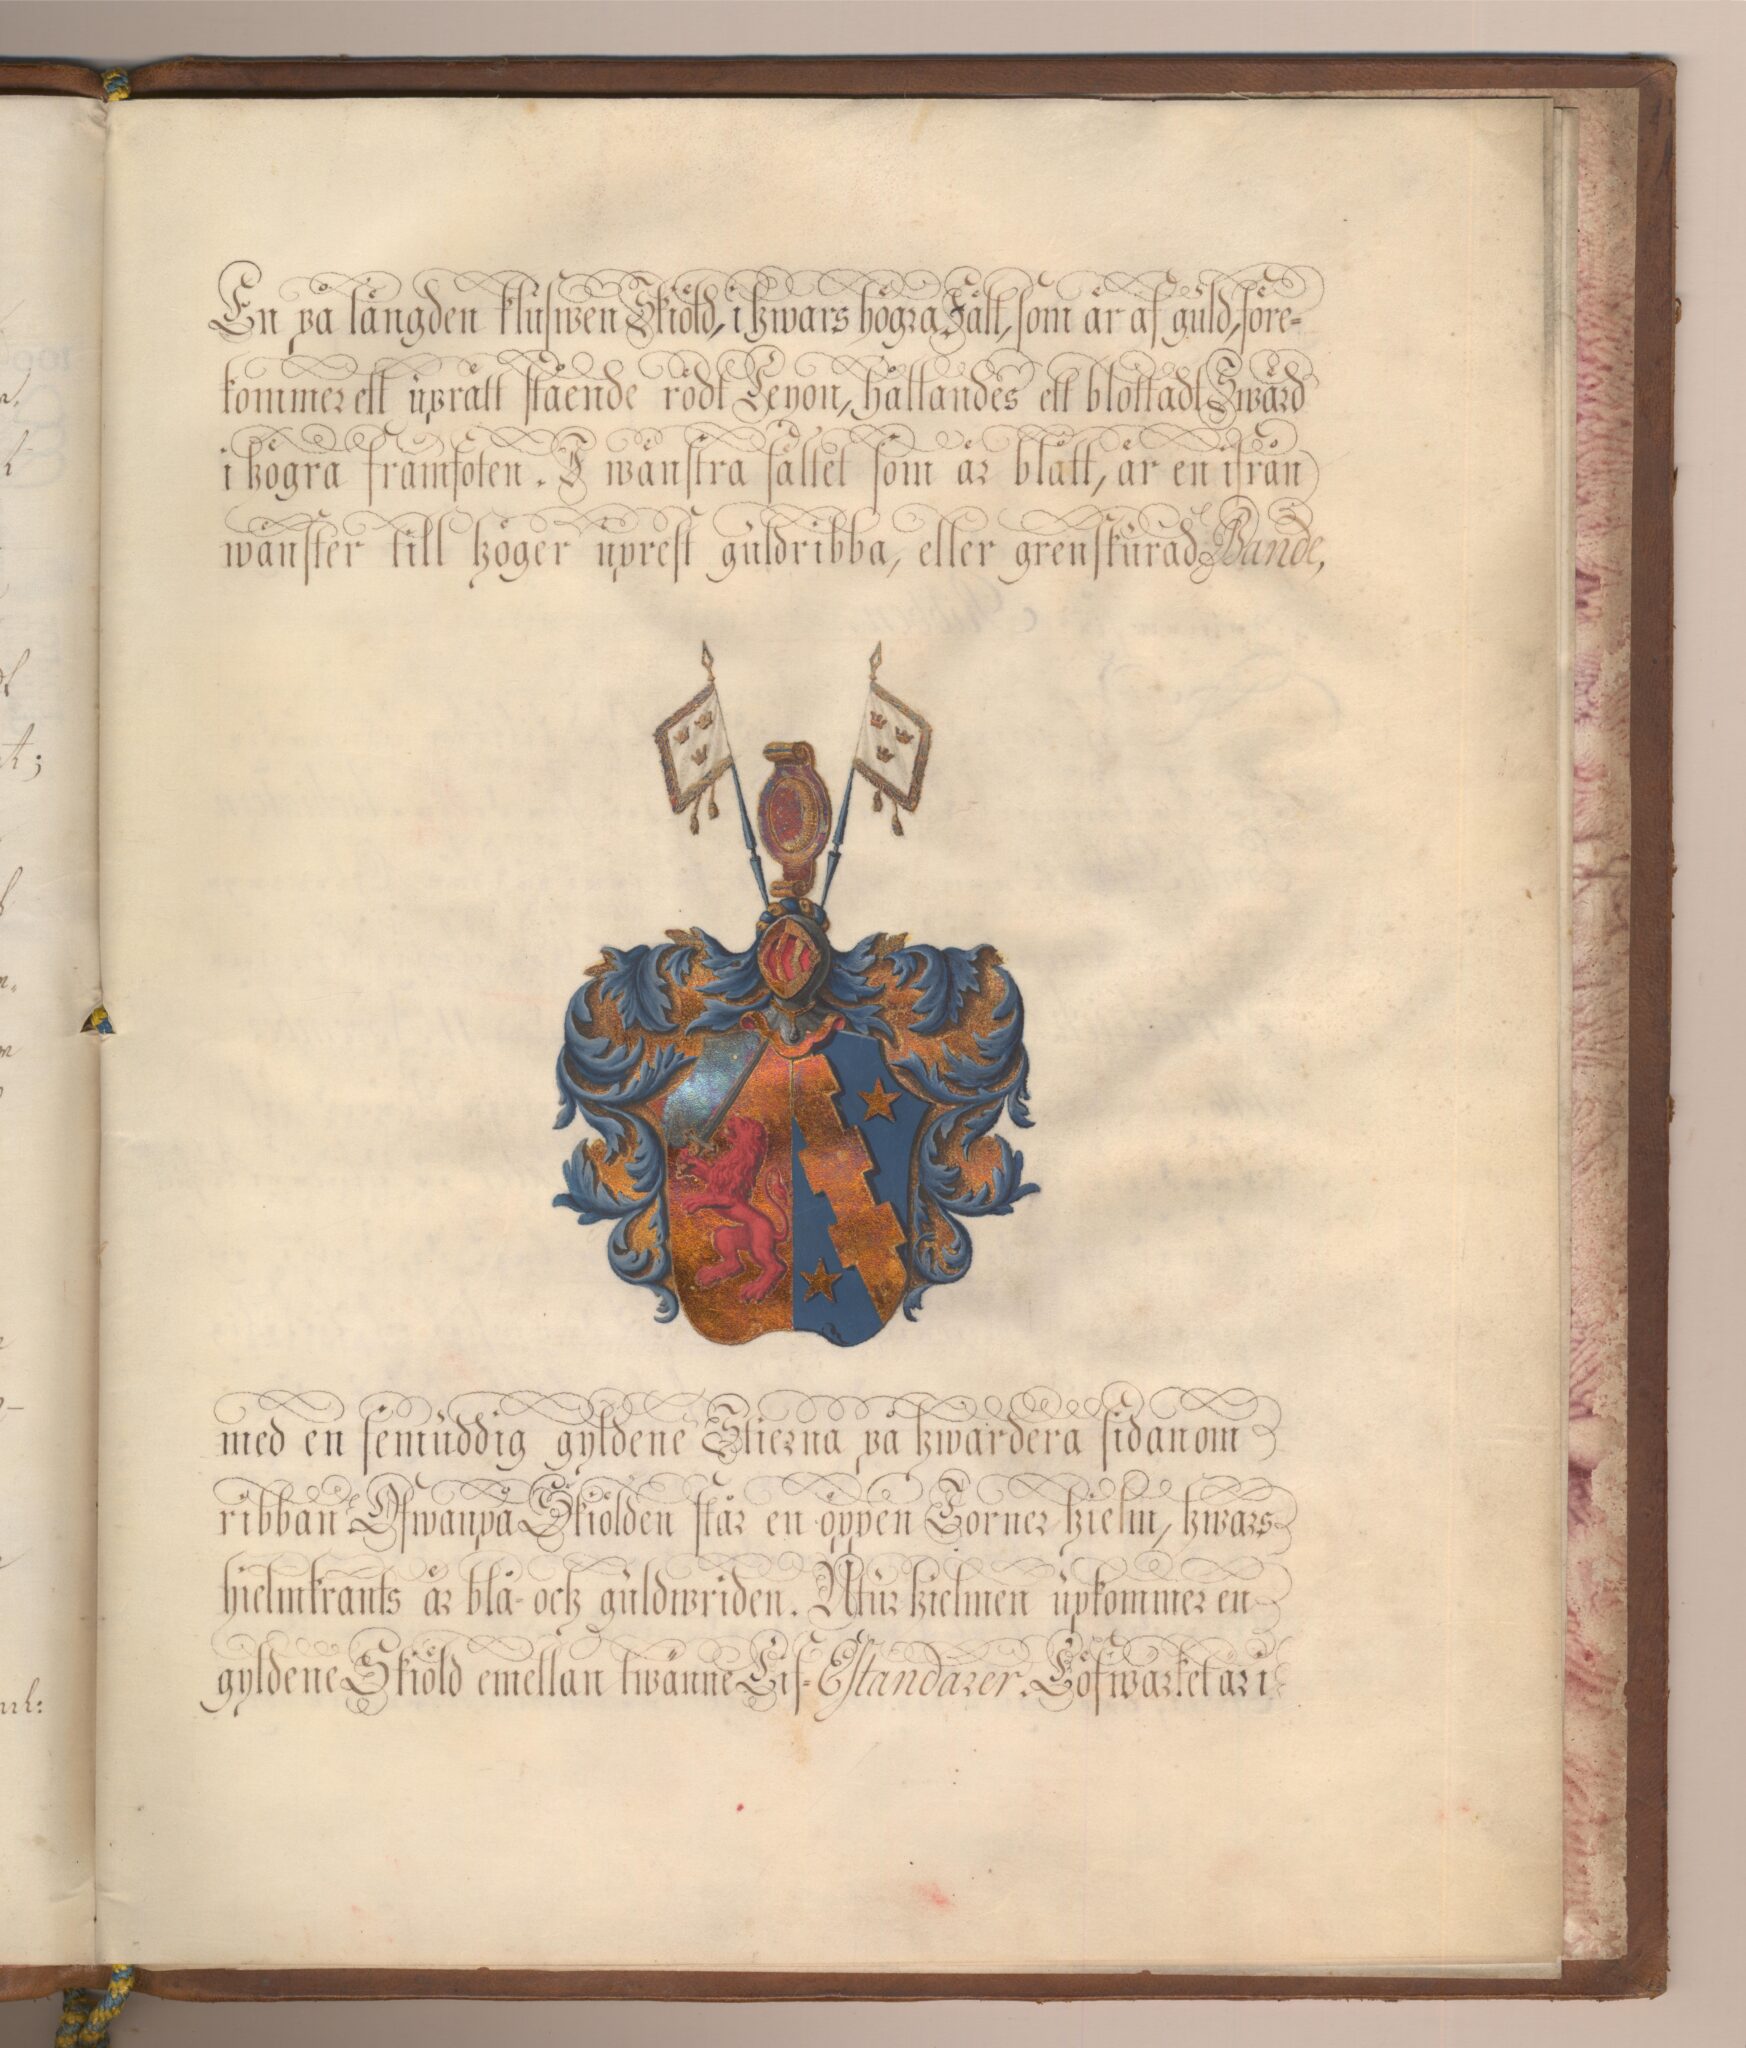 En på längden klufwen Skiöld, i hwars högra Fält, som är af guld, före-
kommer ett uprätt stående rödt Leyon, hållandes ett blottadt Swärd
i högra framfoten. I wänstra fältet som är blått, är en ifrån
wänster till höger uprest guldribba, eller grenskurad Bande,
med en femuddig gyldene Stierna på hwardera sidan om
ribban. Ofwanpå Skiölden står en öppen Torner hielm, hwars
hielmkrants är blå- och guldwriden. Utur hielmen upkommer en
gyldene Skiöld emellan twänne Lif-Estandarer. Löfwarket är i